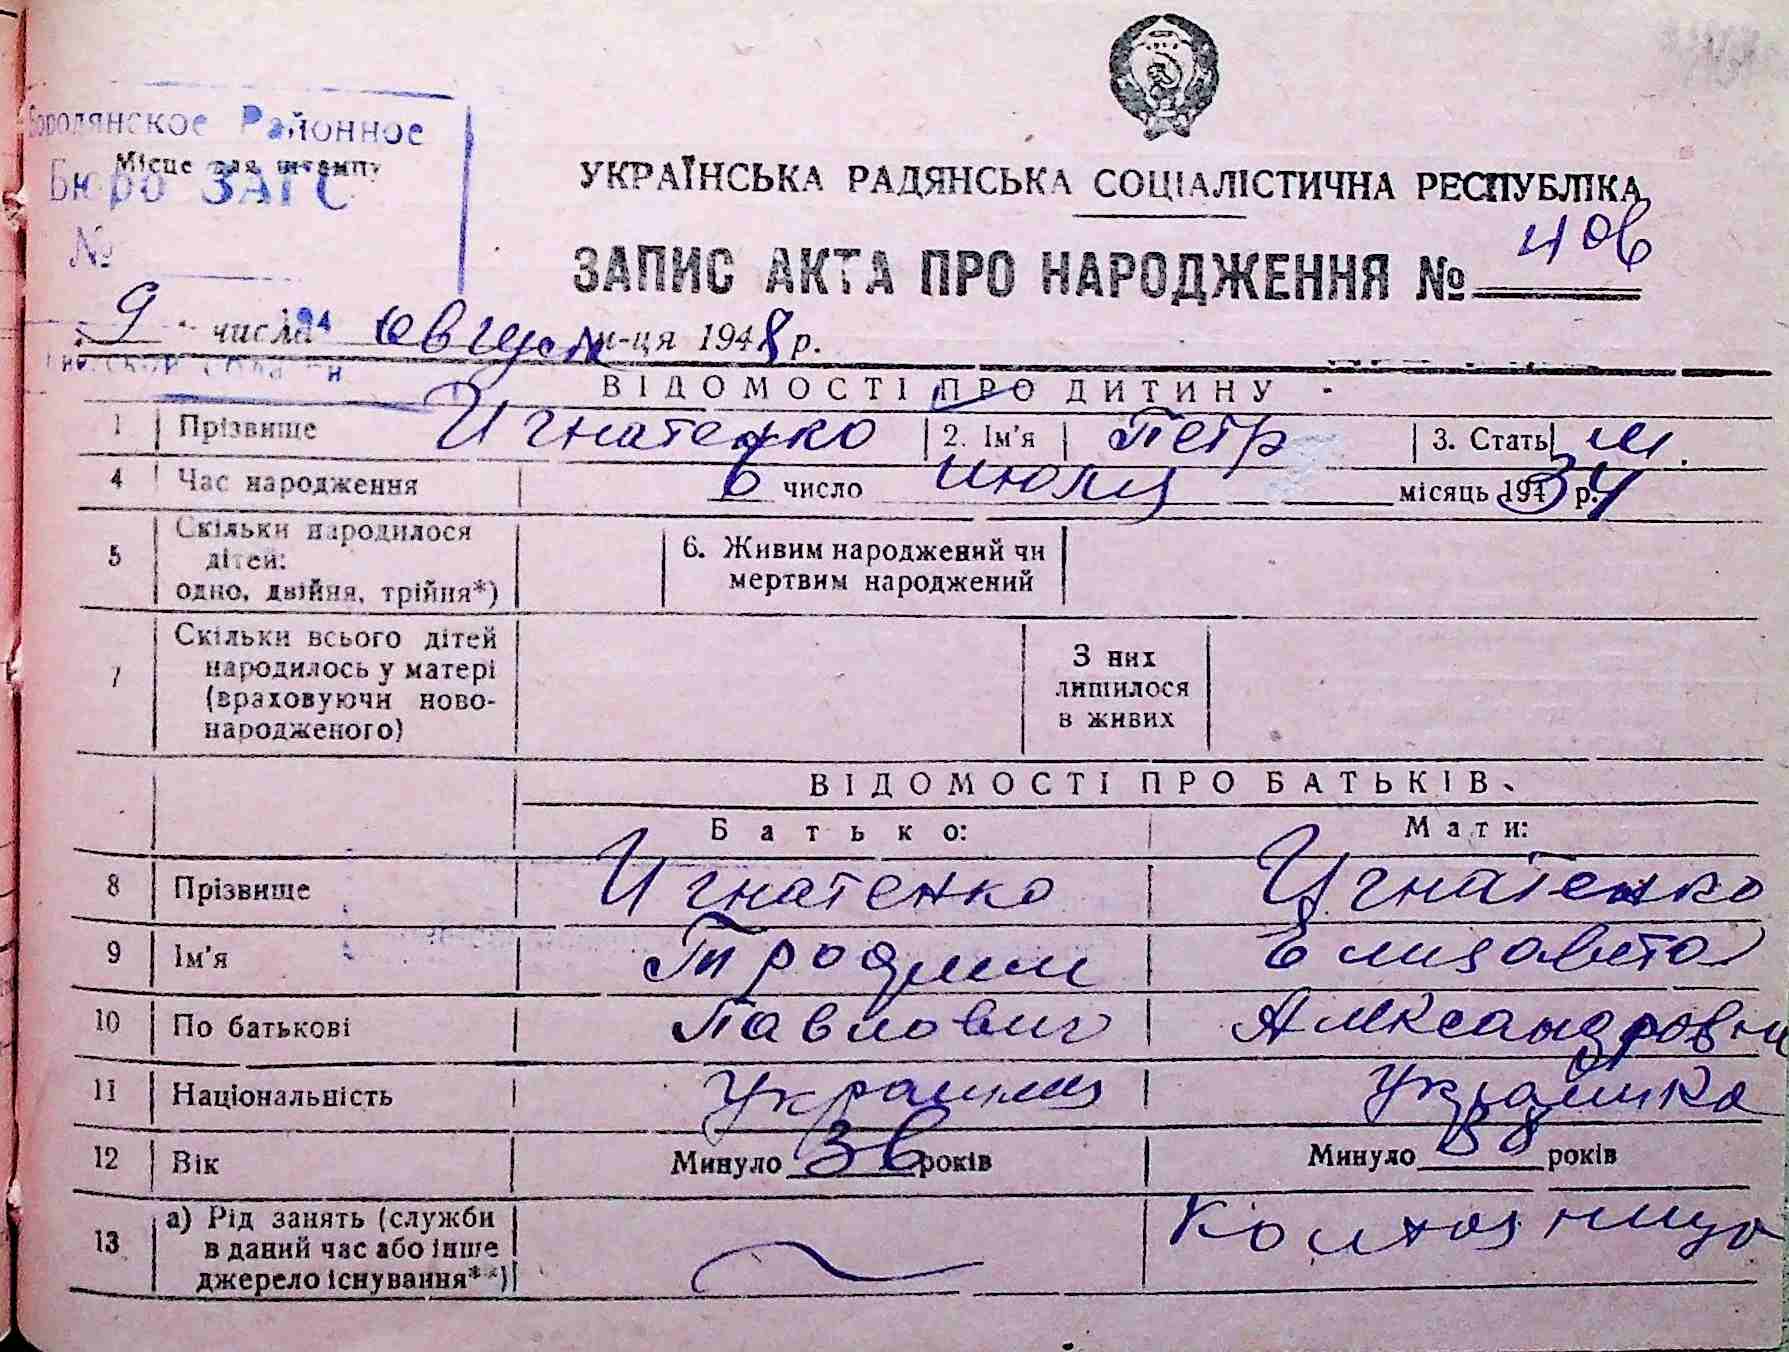 Бородянское Районное
Місце для штампу
Бюро ЗАГС
№
УКРАЇНСЬКА РАДЯНСЬКА СОЦІАЛІСТИЧНА РЕСПУБЛІКА
ЗАПИС АКТА ПРО НАРОДЖЕННЯ №
9 числа август м-ця 1948 р.
ВІДОМОСТІ ПРО ДИТИНУ
1 Прізвище Игнатенко 2. Ім'я Петр 3. Стать м.
4 Час народження 6 число июля місяць 1934 р.
5 Скільки народилося дітей: одно, двійня, трійня*) 6. Живим народжений чи мертвим народжений
7 Скільки всього дітей народилось у матері (враховуючи новонародженого) З них лишилося в живих
ВІДОМОСТІ ПРО БАТЬКІВ
Батько: Мати:
8 Прізвище Игнатенко Игнатенко
9 Ім'я Елизавета
10 По батькові Павлович Александровна
11 Національність Украинец Украинка
12 Вік Минуло 36 років Минуло 38 років
13 а) Рід занять (служби в даний час або інше джерело існування**) Колхозница